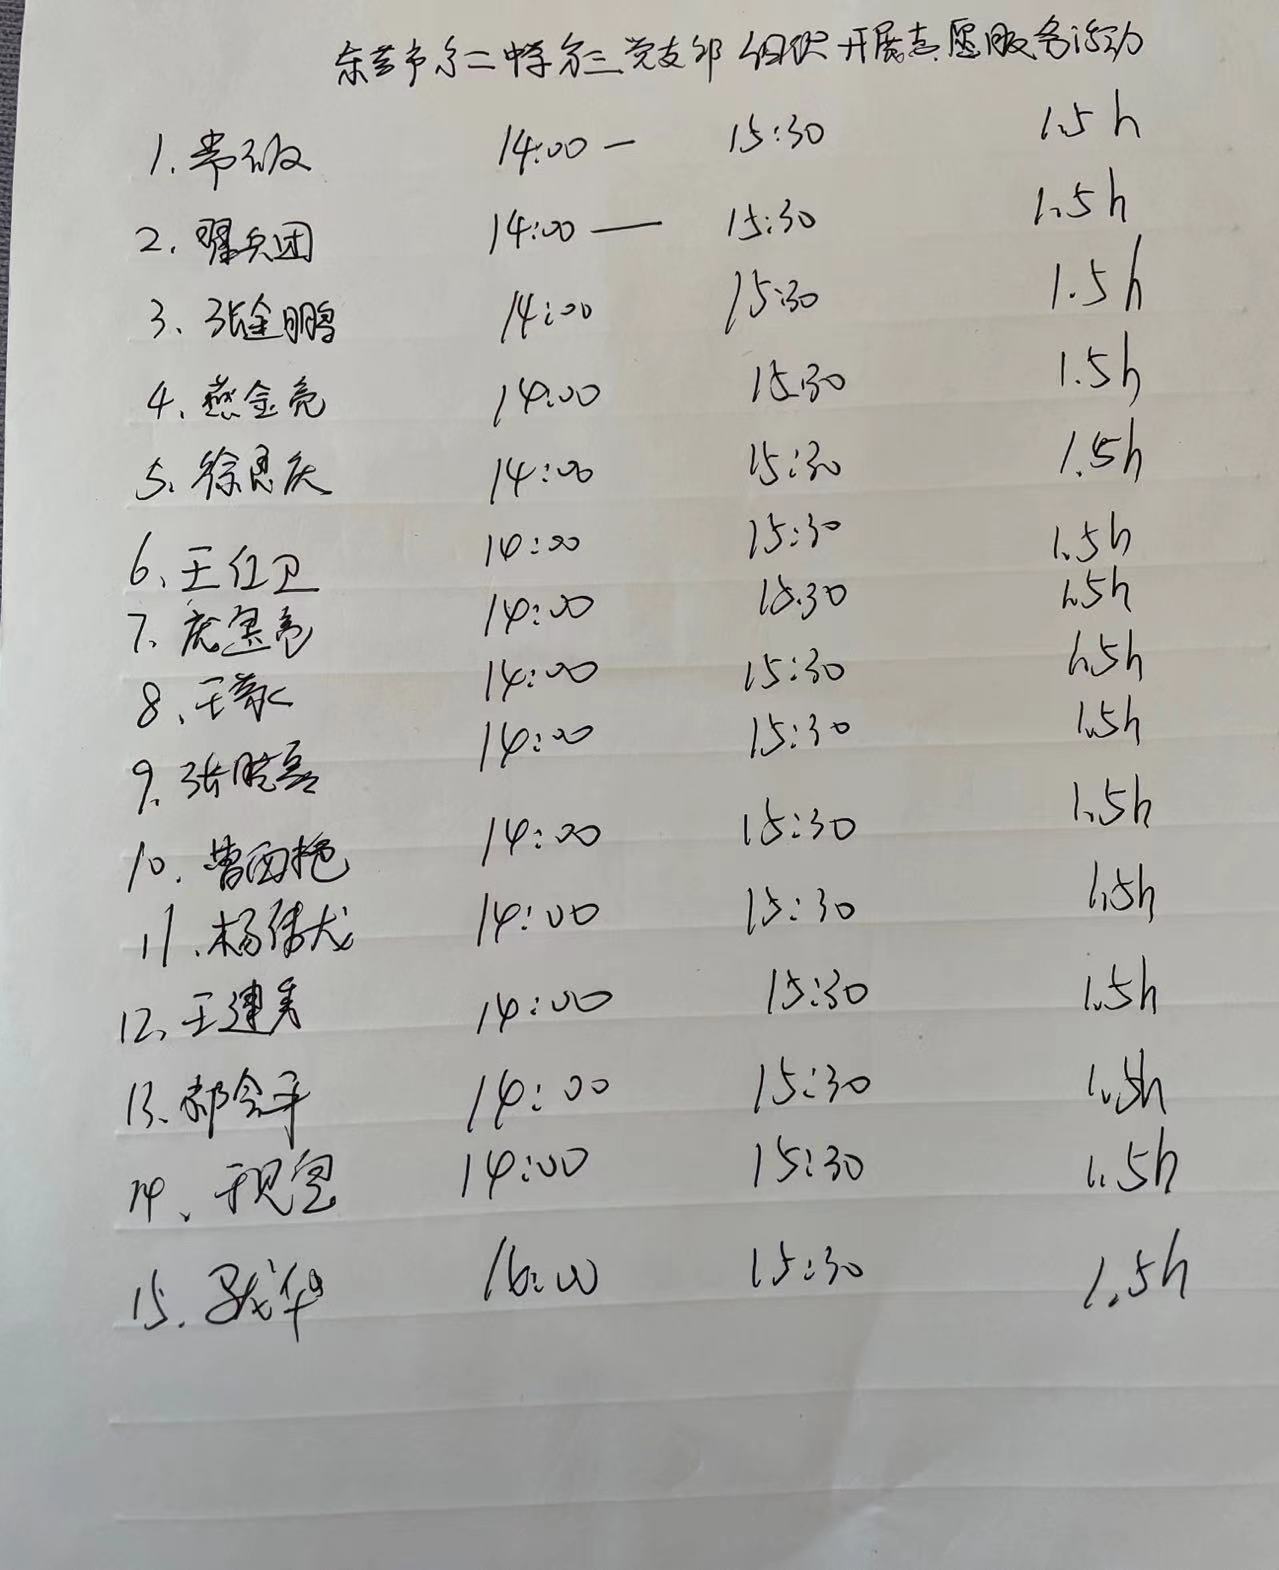 东营市第二中学第三党支部组织开展志愿服务活动
1. 14:00 — 15:30 1.5h
2. 翟兵团 14:00 — 15:30 1.5h
3、张金鹏 14:00 15:30 1.5h
4、燕金亮 14:00 15:30 1.5h
5、徐恩庆 14:00 15:30 1.5h
6、王红卫 14:00 15:30 1.5h
7、 14:00 15:30 1.5h
8、王 14:00 15:30 1.5h
9、张 14:00 15:30 1.5h
10. 曹西艳 14:00 15:30 1.5h
11、杨 14:00 15:30 1.5h
12、王建秀 14:00 15:30 1.5h
13、郝会平 14:00 15:30 1.5h
14、 14:00 15:30 1.5h
15. 15:30 1.5h